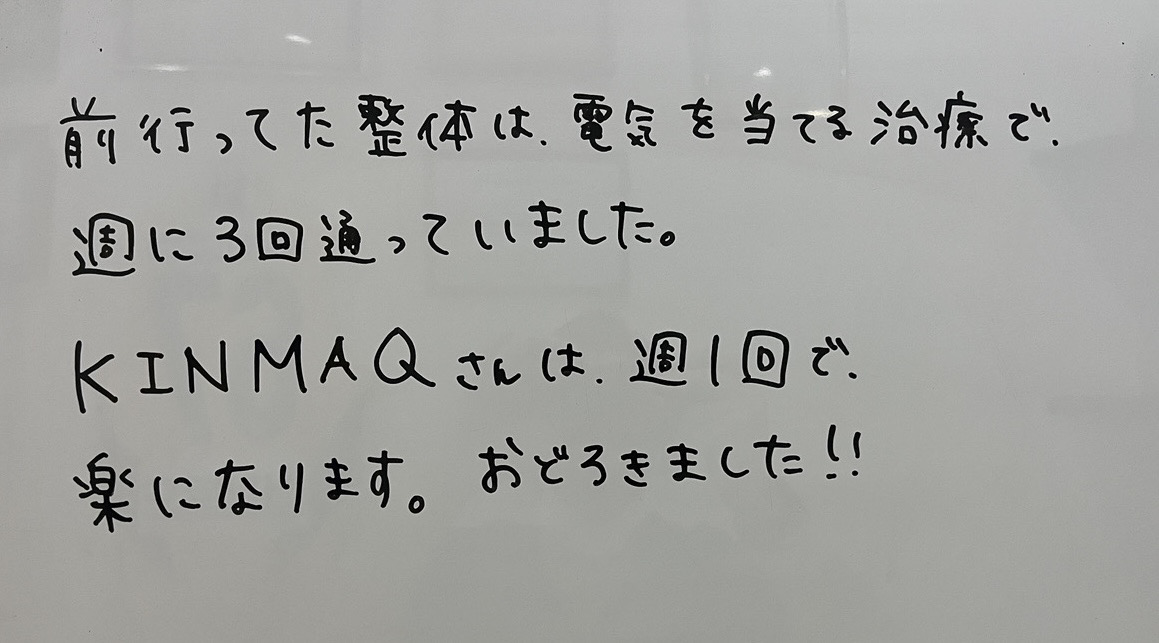 前行ってた整体は、電気を当てる治療で、
週に3回通っていました。
KINMAQさんは、週1回で、
楽になります。おどろきました!!